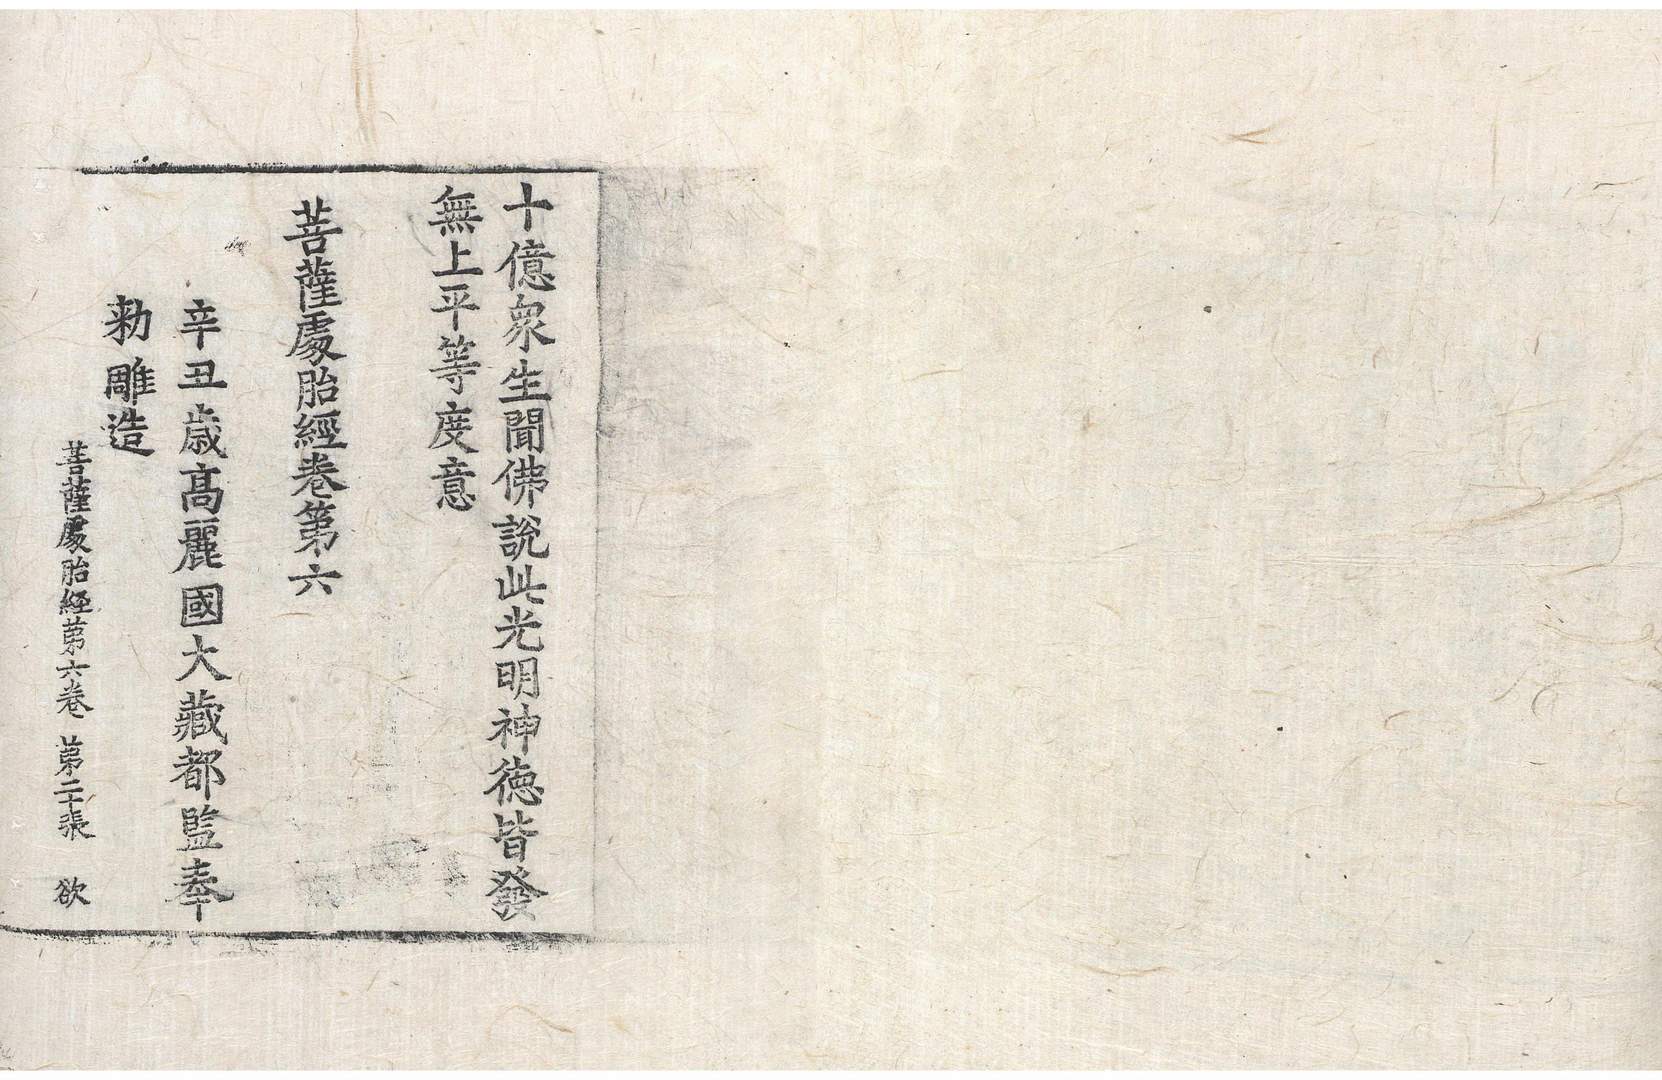 十億衆生聞佛說此光明神德皆發
無上平等度意
菩薩處胎經卷第六
辛丑歲高麗國大藏都監奉
勑雕造
菩薩處胎經第六卷 第二十張 欲